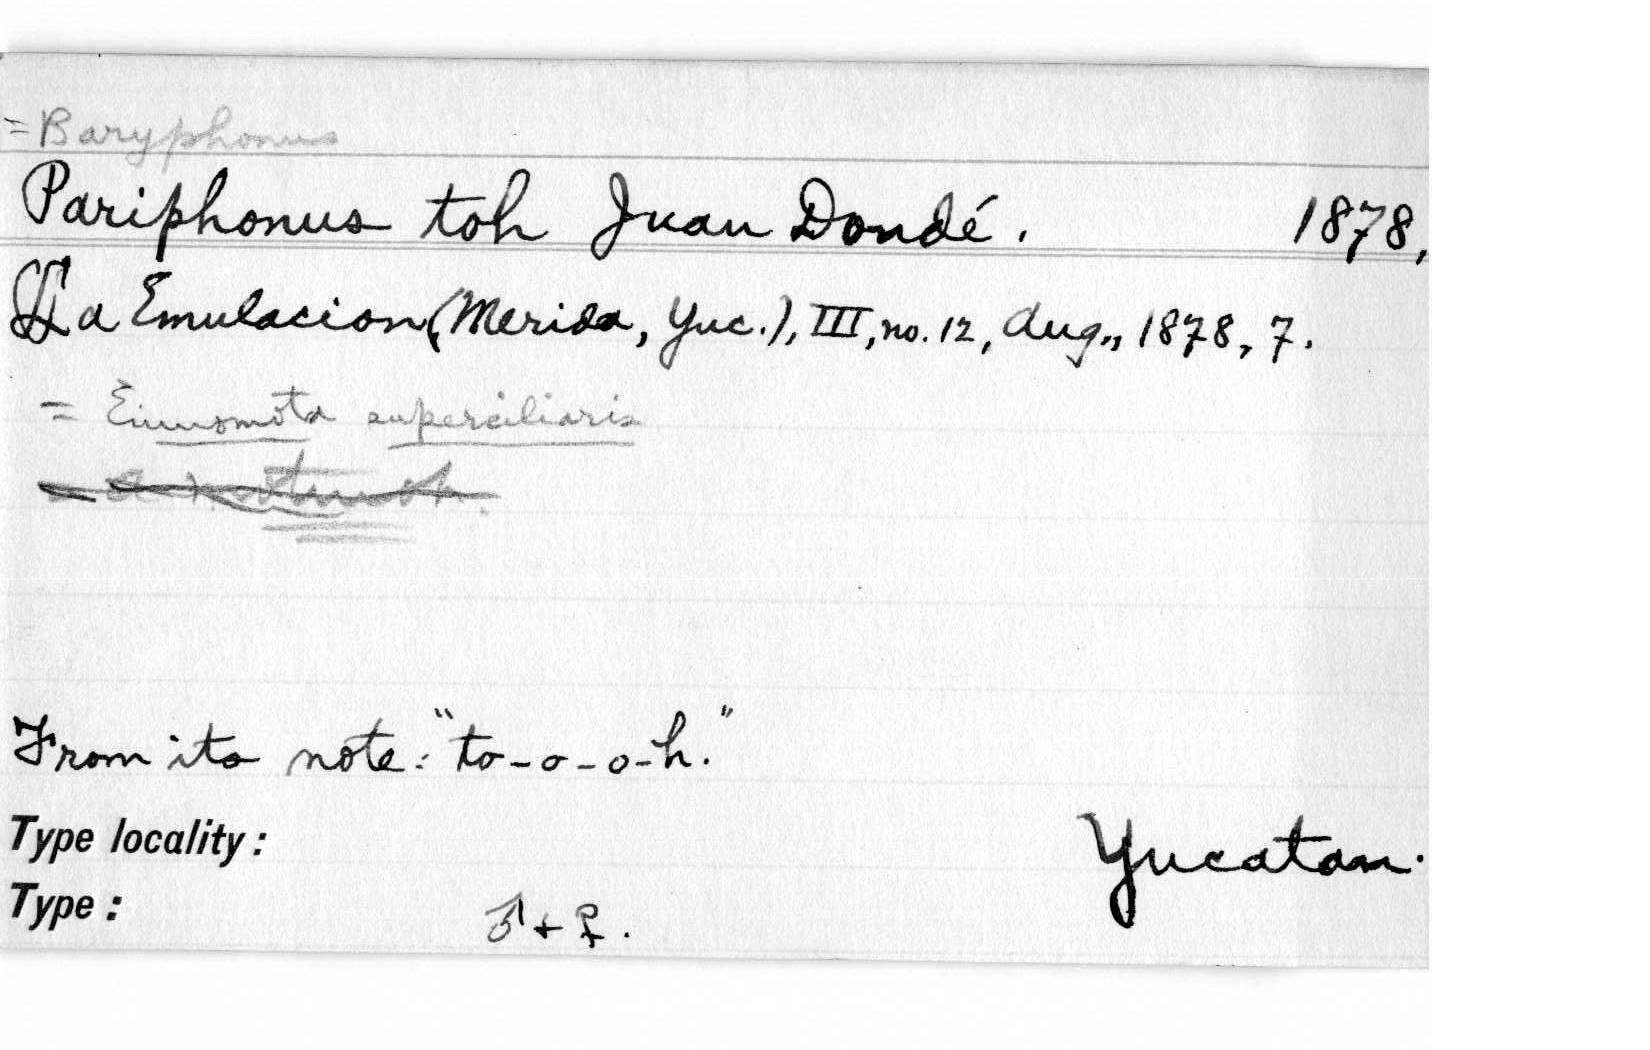 = Baryphonus
Pariphonus toh Juan Dondé. 1878,
La Emulacion (Merida, Yuc.), III, no. 12, Aug., 1878, 7.
= Eumomota superciliaris
From its note: "to-o-o-h."
Type locality: Yucatan.
Type: ♂ + ♀.